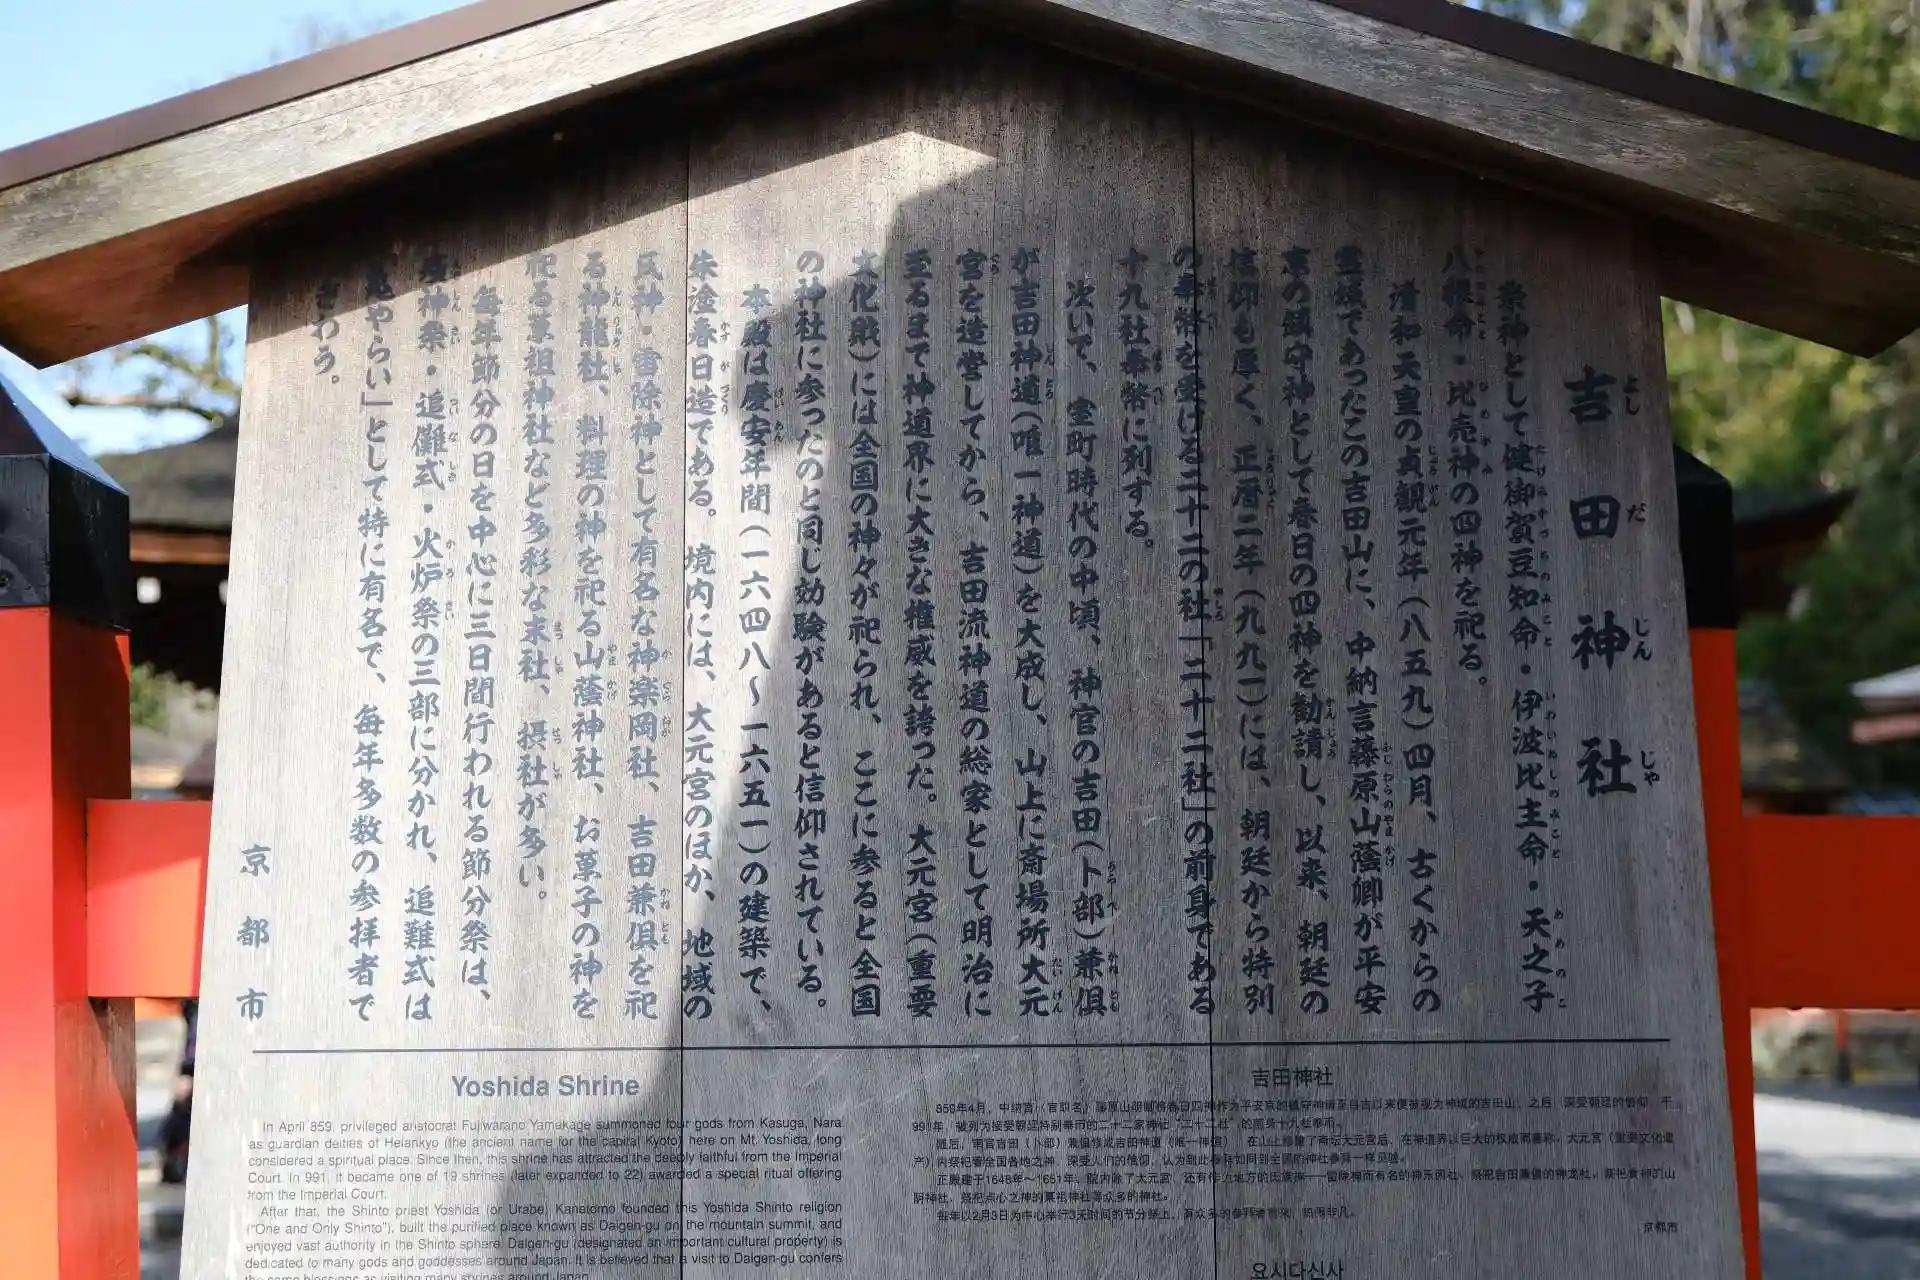 吉田神社
よしだじんじゃ
祭神として健御賀豆知命・伊波比主命・天之子
八根命・比売神の四神を祀る。
清和天皇の貞観元年(八五九)四月、古くからの
霊域であったこの吉田山に、中納言藤原山蔭卿が平安
京の鎮守神として春日の四神を勧請し、以来、朝廷の
信仰も厚く、正暦二年(九九一)には、朝廷から特別
の奉幣を受ける二十二の社「二十二社」の前身である
十九社奉幣に列する。
次いで、室町時代の中頃、神官の吉田(卜部)兼俱
が吉田神道(唯一神道)を大成し、山上に斎場所大元
宮を造営してから、吉田流神道の総家として明治に
至るまで神道界に大きな権威を誇った。大元宮(重要
文化財)には全国の神々が祀られ、ここに参ると全国
の神社に参ったのと同じ効験があると信仰されている。
本殿は慶安年間(一六四八〜一六五一)の建築で、
朱塗春日造である。境内には、大元宮のほか、地域の
氏神・雷除神として有名な神楽岡社、吉田兼俱を祀
る神龍社、料理の神を祀る山蔭神社、お菓子の神を
祀る菓祖神社など多彩な末社、摂社が多い。
毎年節分の日を中心に三日間行われる節分祭は、
疫神祭・追儺式・火炉祭の三部に分かれ、追難式は
「鬼やらい」として特に有名で、毎年多数の参拝者で
にぎわう。
京都市
Yoshida Shrine
In April 859, privileged aristocrat Fujiwarano Yamakage summoned four gods from Kasuga, Nara
as guardian deities of Heiankyo (the ancient name for the capital Kyoto) here on Mt. Yoshida, long
considered a spiritual place. Since then, this shrine has attracted the deeply faithful from the Imperial
Court. In 991, it became one of 19 shrines (later expanded to 22) awarded a special ritual offering
from the Imperial Court.
After that, the Shinto priest Yoshida (or Urabe) Kanetomo founded this Yoshida Shinto religion
("One and Only Shinto"), built the purified place known as Daigen-gu on the mountain summit, and
enjoyed vast authority in the Shinto sphere. Daigen-gu (designated an important cultural property) is
dedicated to many gods and goddesses around Japan. It is believed that a visit to Daigen-gu confers
the same blessings as visiting many shrines around Japan.
吉田神社
859年4月，中纳言（官职名）藤原山荫卿将春日四神作为平安京的镇守神请至自古以来便被视为神域的吉田山。之后，深受朝廷的信仰，于
991年，被列为接受朝廷特别奉币的二十二家神社"二十二社"的前身十九社奉币。
随后，
在山上修建了斋坛大元宫后，在神道界以巨大的权威而著称。大元宫（重要文化遗
产）内祭祀着全国各地之神，深受人们的信仰，认为到此参拜如同到全国的神社参拜一样灵验。
正殿建于1648年～1651年。院内除了大元宫，还有作为地方的氏族神
阴神社、祭祀点心之神的菓祖神社等众多的神社。
每年以2月3日为中心举行3天时间的节分祭上，有众多的参拜者前来，热闹非凡。
京都市
요시다신사